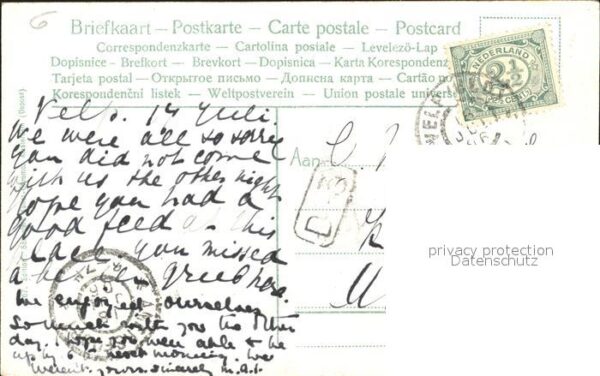 6
Briefkaart - Postkarte - Carte postale - Postcard
Correspondenzkarte - Cartolina postale - Levelező-Lap
Dopisnice - Brefkort - Brevkort - Dopisnica - Karta Korespondenc
Tarjeta postal - Открытое письмо - Дописна карта - Cartão po
Korespondenční listek - Weltpostverein - Union postale universe
NEDERLAND
2½
CENT
Velp. 14 Juli.
We were all so sorry
you did not come
with us the other night
hope you had a
good feed at this
place you missed
a
We enjoyed ourselves
so much with you the other
day. I hope you were able to be
up by 6 next morning. We
weren't. yours sincerely
Aan
privacy protection
Datenschutz